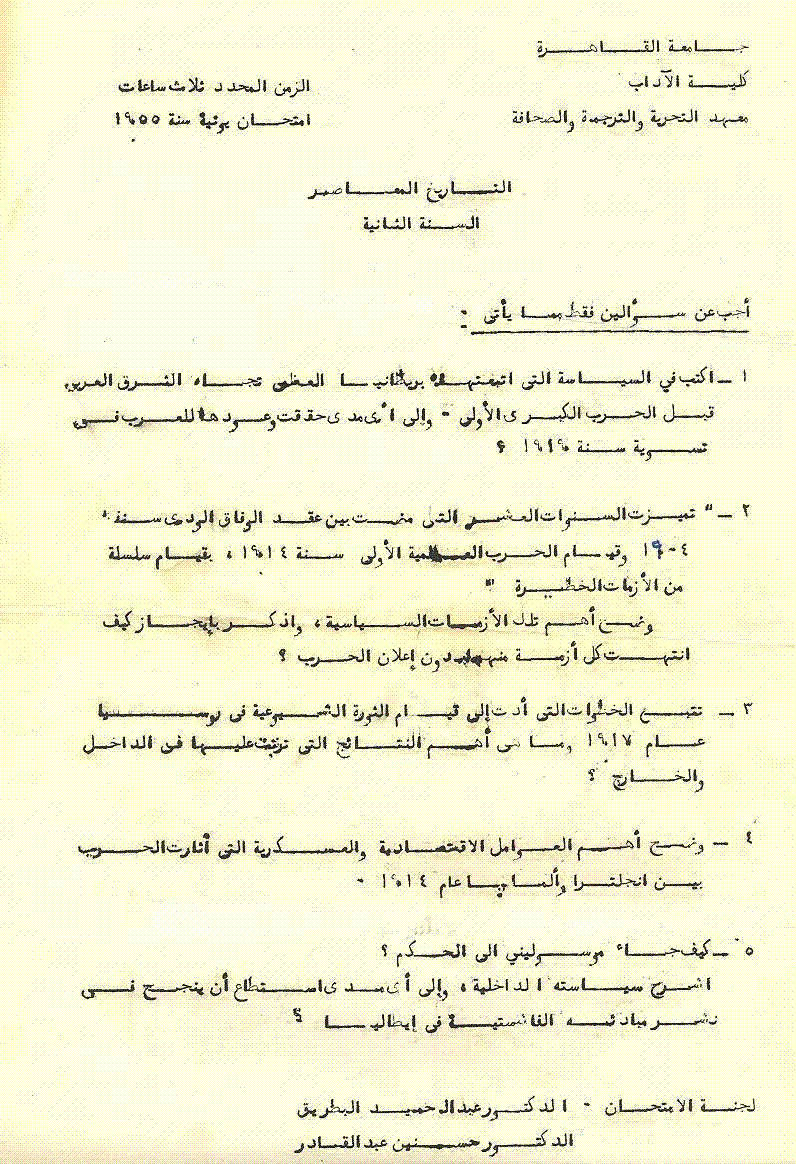 جامعة القاهرة
كلية الآداب
معهد التحرير والترجمة والصحافة
الزمن المحدد ثلاث ساعات
امتحان يونية سنة ١٩٥٥
التاريخ المعاصر
السنة الثانية
أجب عن سؤالين فقط مما يأتى :
١ ــ اكتب في السياسة التى اتبعتها بريطانيا العظمى تجاه الشرق العربى
قبل الحرب الكبرى الأولى - وإلى أى مدى حققت وعودها للعرب فى
تسوية سنة ١٩١٩ ؟
٢ ــ " تميزت السنوات العشر التى مضت بين عقد الوفاق الودى سنة
١٩٠٤ وقيام الحرب العالمية الأولى سنة ١٩١٤ ، بقيام سلسلة
من الأزمات الخطيرة "
وضح أهم تلك الأزمات السياسية ، واذكر بإيجاز كيف
انتهت كل أزمة منها بدون إعلان الحرب ؟
٣ ــ تتبع الخطوات التى أدت إلى قيام الثورة الشيوعية فى روسيا
عام ١٩١٧ وما هى أهم النتائج التى ترتبت عليها فى الداخل
والخارج ؟
٤ ــ وضح أهم العوامل الاقتصادية والعسكرية التى أثارت الحرب
بين انجلترا وألمانيا عام ١٩١٤ -
٥ ــ كيف جاء موسوليني الى الحكم ؟
اشرح سياسته الداخلية ، وإلى أى مدى استطاع أن ينجح فى
نشر مبادئه الفاشستية فى إيطاليا ؟
لجنة الامتحان - الدكتور عبد الحميد البطريق
الدكتور حسنين عبد القادر